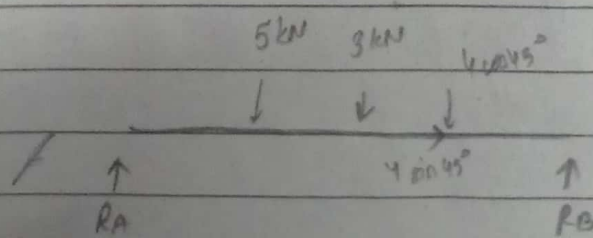 5 kN 3 kN 4 sin45°
4 sin45°
RA RB